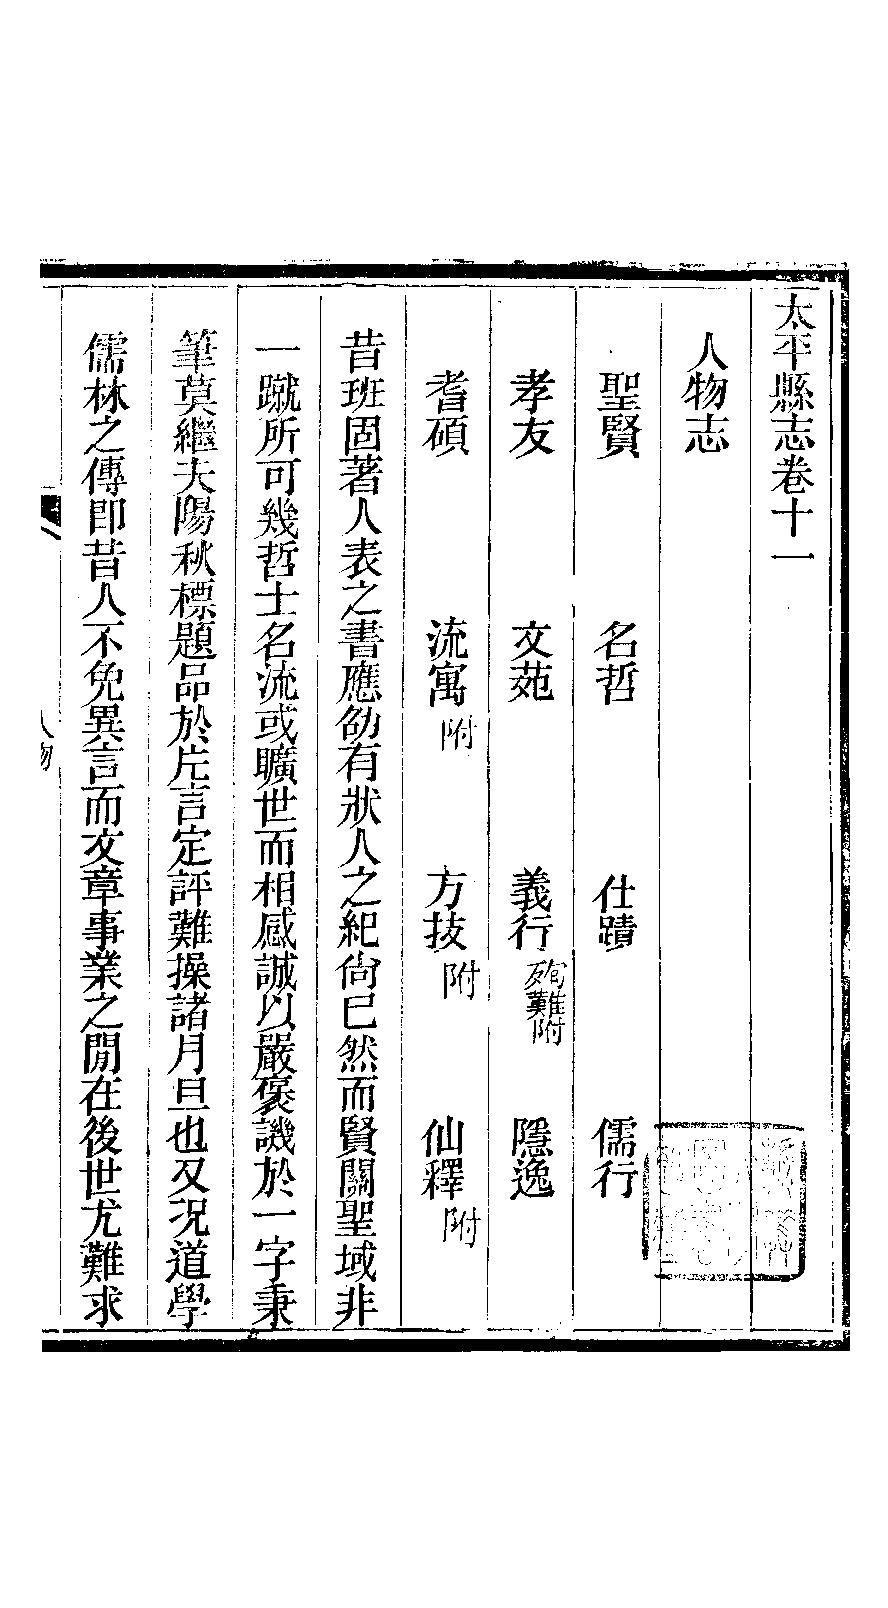 太平縣志卷十一
人物志
聖賢 名哲 仕蹟 儒行
孝友 文苑 義行殉難附 隱逸
耆碩 流寓附 方技附 仙釋附
昔班固著人表之書應劭有狀人之紀尙已然而賢關聖域非
一蹴所可幾哲士名流或曠世而相感誠以嚴褒譏於一字秉
筆莫繼夫陽秋標題品於片言定評難操諸月旦也又况道學
儒林之傳卽昔人不免異言而文章事業之閒在後世尤難求
人物